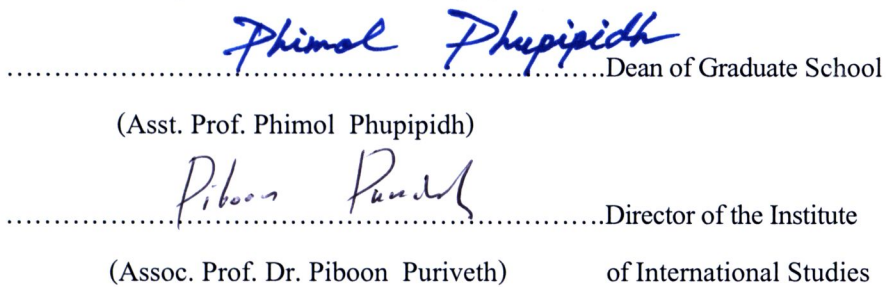 Phimol Phupipidh
........................................................................Dean of Graduate School
(Asst. Prof. Phimol Phupipidh)
Piboon
........................................................................Director of the Institute
(Assoc. Prof. Dr. Piboon Puriveth) of International Studies